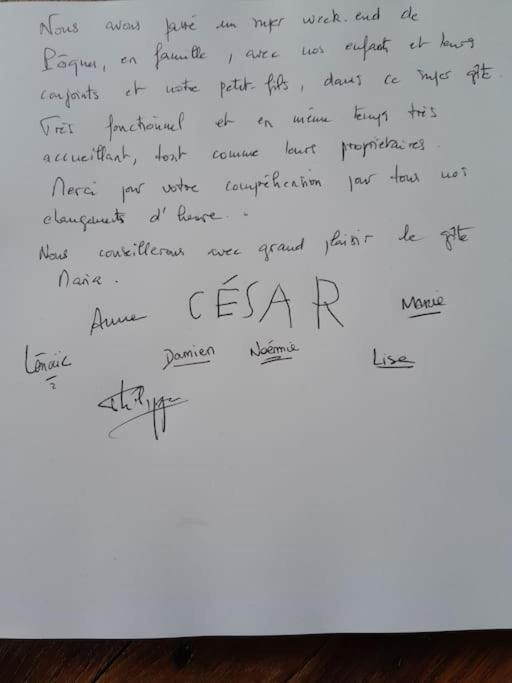 Nous avons passé un super week-end de
Pâques, en famille, avec nos enfants et leurs
conjoints et notre petit-fils, dans ce super gîte.
Très fonctionnel et en même temps très
accueillant, tout comme leurs propriétaires.
Merci pour votre compréhension pour tous nos
changements d'heure.
Nous conseillerons avec grand plaisir le gîte
Maria.
Anne CÉSAR Marie
Lénaïc Damien Noémie Lise
Philippe